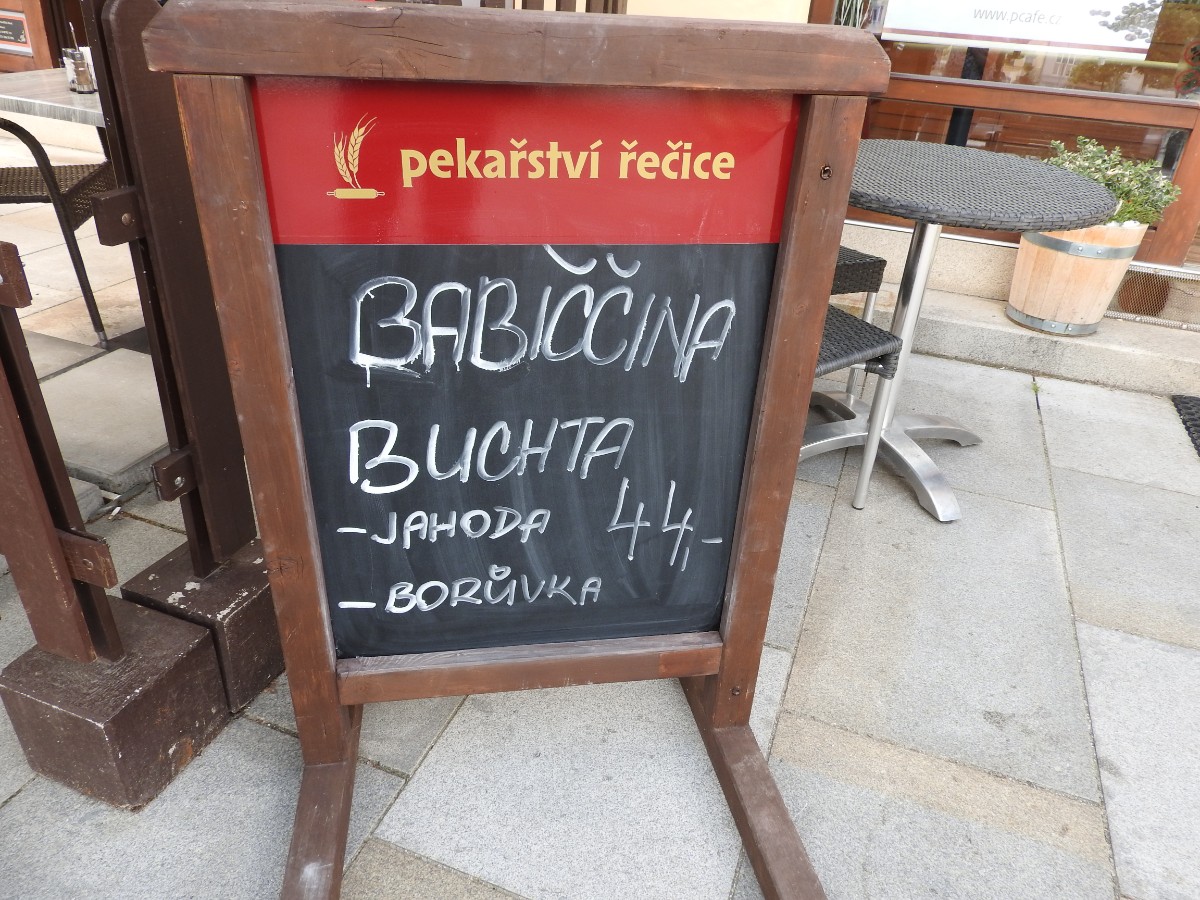 www.pcafe.cz
pekařství řečice
BABIČČINA
BUCHTA
-JAHODA 44,-
-BORŮVKA